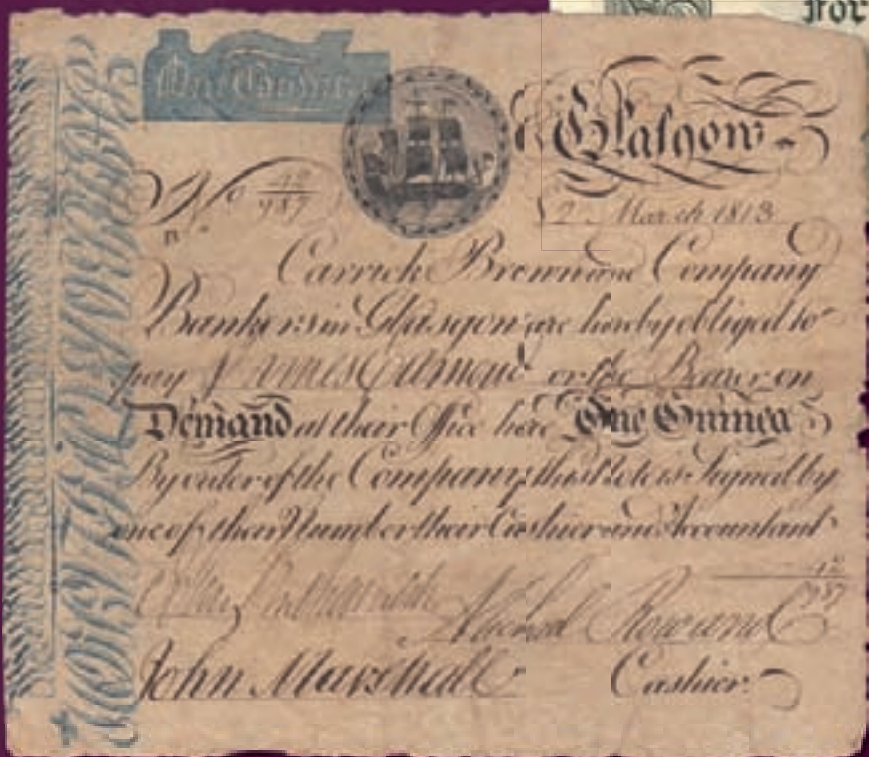 for
One Guinea
Glasgow
No 12/987
2 March 1813
Carrick Brown and Company
Bankers in Glasgow are hereby obliged to
pay or the Bearer on
Demand at their Office here One Guinea
By order of the Company this Note is Signed by
one of their Number their Cashier and Accountant
John Marshall Cashier